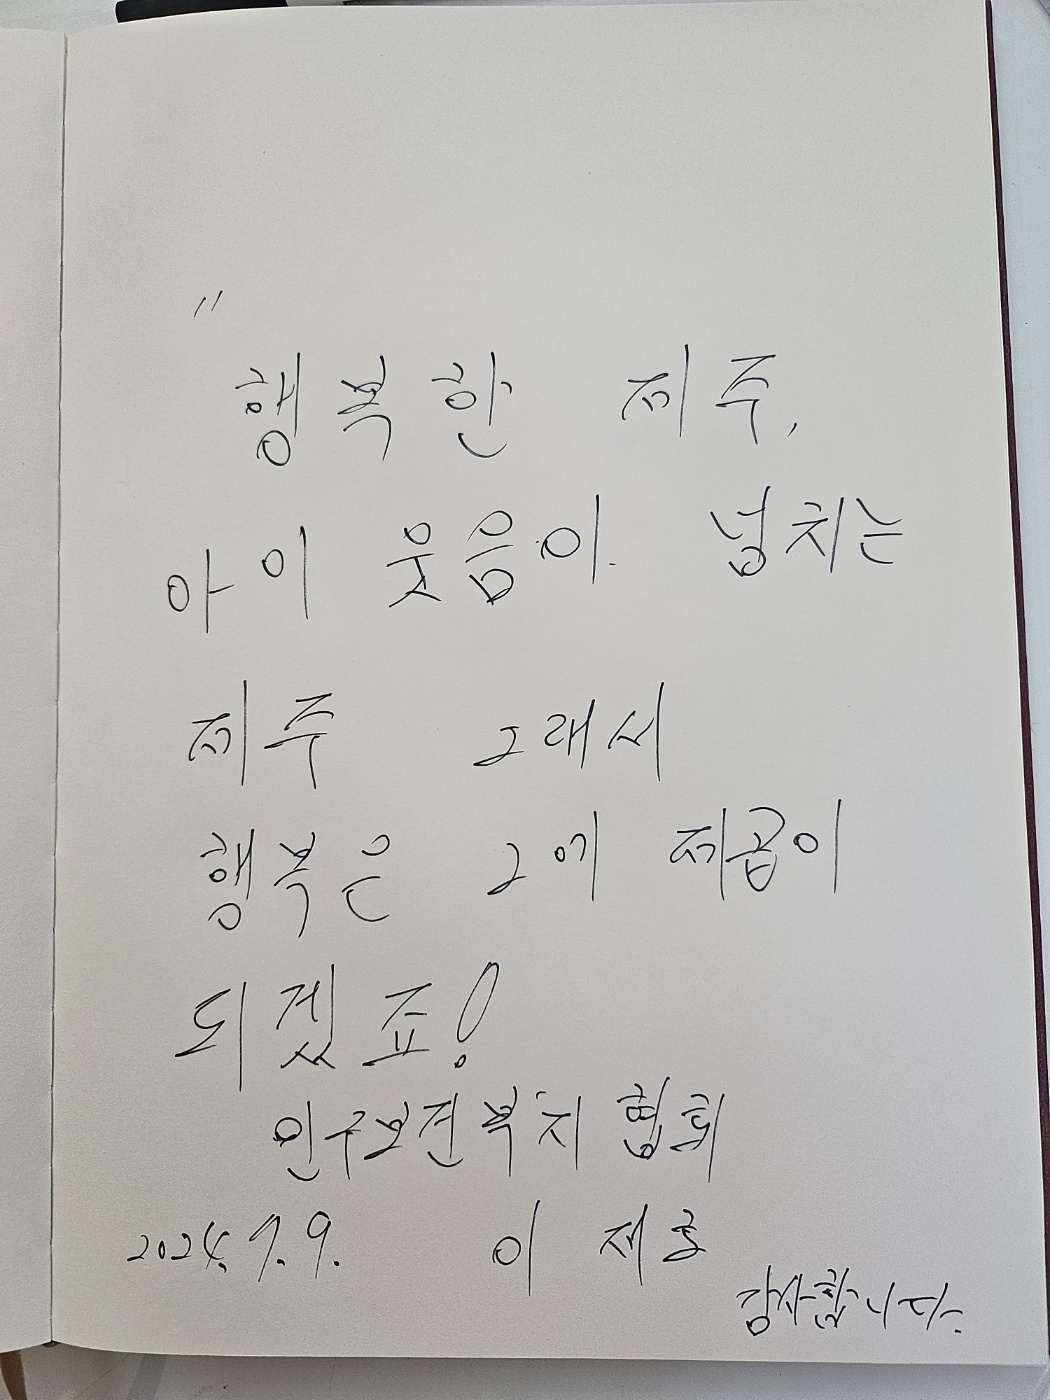 "
행복한 제주,
아이 웃음이. 넘치는
제주 그래서
행복은 그에 제곱이
되겠죠!
인구보건복지협회
2024. 7. 9. 이 제호
감사합니다.